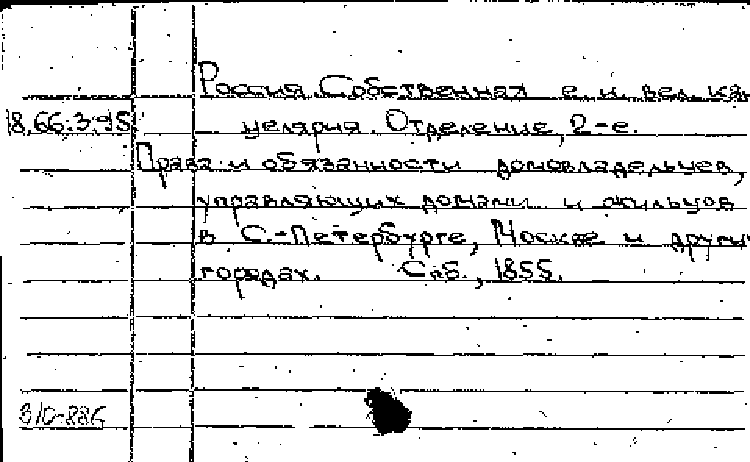 Россия. Собственная е. и. вел. кан
18.66.3.98. целярия. Отделение, 2-е.
Права и обязанности домовладельцев,
управляющих домами и жильцов
в С.-Петербурге, Москве и други
городах. Спб., 1855.
310-886